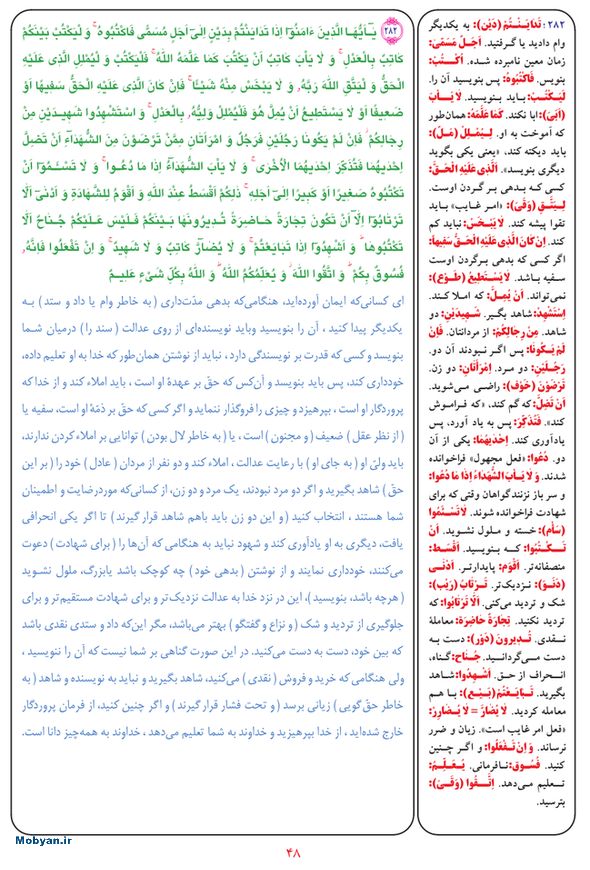 ﴿۲۸۲﴾ يَـٰٓأَيُّهَا الَّذينَ ءَامَنُوٓا إِذا تَدايَنتُمْ بِدَيْنٍ إِلىٰٓ أَجَلٍ مُسَمًّى فَاكْتُبُوهُ ۚ وَ لْيَكْتُبْ بَيْنَكُمْ
كاتِبٌ بِالْعَدْلِ ۚ وَ لا يَأْبَ كاتِبٌ أَنْ يَكْتُبَ كَما عَلَّمَهُ اللهُ ۚ فَلْيَكْتُبْ وَ لْيُمْلِلِ الَّذى عَلَيْهِ
الْحَقُّ وَ لْيَتَّقِ اللهَ رَبَّهُ وَ لا يَبْخَسْ مِنْهُ شَيْئًا ۚ فَإِنْ كانَ الَّذى عَلَيْهِ الْحَقُّ سَفيهًا أَوْ
ضَعيفًا أَوْ لا يَسْتَطيعُ أَنْ يُمِلَّ هُوَ فَلْيُمْلِلْ وَلِيُّهُ بِالْعَدْلِ ۚ وَ اسْتَشْهِدُوا شَهيدَيْنِ مِنْ
رِجالِكُمْ ۖ فَإِنْ لَمْ يَكُونا رَجُلَيْنِ فَرَجُلٌ وَ امْرَأَتانِ مِمَّنْ تَرْضَوْنَ مِنَ الشُّهَدآءِ أَنْ تَضِلَّ
إِحْدىٰهُما فَتُذَكِّرَ إِحْدىٰهُمَا الْأُخْرىٰ ۚ وَ لا يَأْبَ الشُّهَدآءُ إِذا ما دُعُوا ۚ وَ لا تَسْـَٔمُوٓا أَنْ
تَكْتُبُوهُ صَغيرًا أَوْ كَبيرًا إِلىٰٓ أَجَلِهِ ۚ ذٰلِكُمْ أَقْسَطُ عِنْدَ اللهِ وَ أَقْوَمُ لِلشَّهادَةِ وَ أَدْنىٰٓ أَلّا
تَرْتابُوٓا ۖ إِلّآ أَنْ تَكُونَ تِجارَةً حاضِرَةً تُديرُونَها بَيْنَكُمْ فَلَيْسَ عَلَيْكُمْ جُناحٌ أَلّا
تَكْتُبُوها ۗ وَ أَشْهِدُوٓا إِذا تَبايَعْتُمْ ۚ وَ لا يُضآرَّ كاتِبٌ وَ لا شَهيدٌ ۚ وَ إِنْ تَفْعَلُوا فَإِنَّهُ
فُسُوقٌ بِكُمْ ۗ وَ اتَّقُوا اللهَ ۖ وَ يُعَلِّمُكُمُ اللهُ ۗ وَ اللهُ بِكُلِّ شَىْءٍ عَليمٌ
ای کسانی‌که ایمان آورده‌اید، هنگامی‌که بدهی مدّت‌داری ( به خاطر وام یا داد و ستد ) به
یکدیگر پیدا کنید ، آن را بنویسید وباید نویسنده‌ای از روی عدالت ( سند را ) درمیان شما
بنویسد و کسی که قدرت بر نویسندگی دارد ، نباید از نوشتن همان‌طور که خدا به او تعلیم داده،
خودداری کند، پس باید بنویسد و آن‌کس که حقّ بر عهدهٔ او است ، باید املاء کند و از خدا که
پروردگار او است ، بپرهیزد و چیزی را فروگذار ننماید و اگر کسی که حقّ بر ذمّهٔ او است، سفیه یا
( از نظر عقل ) ضعیف ( و مجنون ) است ، یا ( به خاطر لال بودن ) توانایی بر املاء کردن ندارند،
باید ولیّ او ( به جای او ) با رعایت عدالت ، املاء کند و دو نفر از مردان ( عادل ) خود را ( بر این
حقّ ) شاهد بگیرید و اگر دو مرد نبودند، یک مرد و دو زن، از کسانی‌که موردرضایت و اطمینان
شما هستند ، انتخاب کنید ( و این دو زن باید باهم شاهد قرار گیرند ) تا اگر یکی انحرافی
یافت، دیگری به او یادآوری کند و شهود نباید به هنگامی که آن‌ها را ( برای شهادت ) دعوت
می‌کنند، خودداری نمایند و از نوشتن ( بدهی خود ) چه کوچک باشد یابزرگ، ملول نشوید
( هرچه باشد، بنویسید )، این در نزد خدا به عدالت نزدیک‌تر و برای شهادت مستقیم‌تر و برای
جلوگیری از تردید و شک ( و نزاع و گفتگو ) بهتر می‌باشد، مگر این‌که داد و ستدی نقدی باشد
که بین خود، دست به دست می‌کنید. در این صورت گناهی بر شما نیست که آن را ننویسید ،
ولی هنگامی که خرید و فروش ( نقدی ) می‌کنید، شاهد بگیرید و نباید به نویسنده و شاهد ( به
خاطر حقّ‌گویی ) زیانی برسد ( و تحت فشار قرار گیرند ) و اگر چنین کنید، از فرمان پروردگار
خارج شده‌اید ، از خدا بپرهیزید و خداوند به شما تعلیم می‌دهد ، خداوند به همه‌چیز دانا است.
۲۸۲: تَدايَنتُمْ (دَيْن): به یکدیگر
وام دادید یا گرفتید. أَجَلٍ مُسَمًّى:
زمان معین نامبرده شده. أُكْتُبْ:
بنویس. فَاكْتُبُوهُ: پس بنویسید آن را.
لْيَكْتُبْ: باید بنویسید. لا يَأْبَ
(أَبَىَ): ابا نکند. كَما عَلَّمَهُ: همان‌طور
که آموخت به او. لِيُمْلِلْ (مَلَّ):
باید دیکته کند، «یعنی یکی بگوید
دیگری بنویسد». اَلَّذى عَلَيْهِ الْحَقُّ:
کسی که بدهی بر گردن اوست.
لِيَتَّقِ (وَقَىَ): «امر غایب» باید
تقوا پیشه کند. لا يَبْخَسْ: نباید کم
کند. إِنْ كانَ الَّذى عَلَيْهِ الْحَقُّ سَفيهًا:
اگر کسی که بدهی برگردن اوست
سفیه باشد. لا يَسْتَطيعُ (طَوَعَ):
نمی‌تواند. أَنْ يُمِلَّ: که املا کند.
اِسْتَشْهِدْ: شاهد بگیر. شَهيدَيْنِ: دو
شاهد. مِنْ رِجالِكُمْ: از مردانتان. فَإِنْ
لَمْ يَكُونا: پس اگر نبودند آن دو.
رَجُلَيْنِ: دو مرد. اِمْرَأَتانِ: دو زن.
تَرْضَوْنَ (خَوْف): راضی می‌شوید.
أَنْ تَضِلَّ: که گم کند، «که فراموش
کند». فَتُذَكِّرَ: پس به یاد آورد، پس
یادآوری کند. إِحْدىٰهُما: یکی از آن
دو. دُعُوا: «فعل مجهول» فراخوانده
شدند. وَ لا يَأْبَ الشُّهَدآءُ إِذا ما دُعُوا:
و سر باز نزنندگواهان وقتی که برای
شهادت فراخوانده شوند. لا تَسْئَمُوا
(سَأَم): خسته و ملول نشوید. أَنْ
تَكْتُبُوا: که بنویسید. أَقْسَط:
منصفانه‌تر. أَقْوَم: پایدارتر. أَدْنىٰ
(دَنَوَ): نزدیک‌تر. تَرْتابُ (رَيْب):
شک و تردید می‌کنی. أَلّا تَرْتابُوا: که
تردید نکنید. تِجارَةً حاضِرَةً: معاملهٔ
نقدی. تُديرُونَ (دَوْر): دست به
دست می‌گردانید. جُناح: گناه،
انحراف از حق. أَشْهِدُوا: شاهد
بگیرید. تَبايَعْتُمْ (بَيْع): با هم
معامله کردید. لا يُضآرَّ = لا يُضارَرْ:
«فعل امر غایب است». زیان و ضرر
نرساند. وَ إِنْ تَفْعَلُوا: و اگر چنین
کنید. فُسُوق: نافرمانی. يُعَلِّمُ:
تعلیم می‌دهد. اِتَّقُوا (وَقَىَ):
بترسید.
Mobyan.ir
۴۸